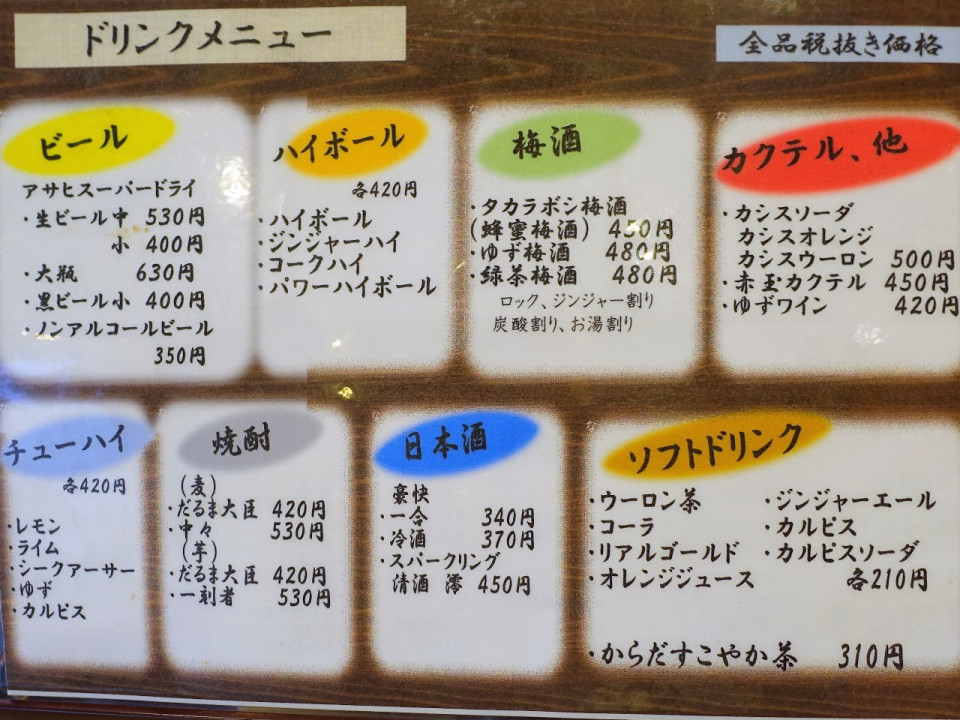 ドリンクメニュー
全品税抜き価格
ビール
アサヒスーパードライ
・生ビール中 530円
小 400円
・大瓶 630円
・黒ビール小 400円
・ノンアルコールビール
350円
ハイボール
各420円
・ハイボール
・ジンジャーハイ
・コークハイ
・パワーハイボール
梅酒
・タカラボシ梅酒
(蜂蜜梅酒) 450円
・ゆず梅酒 480円
・緑茶梅酒 480円
ロック、ジンジャー割り
炭酸割り、お湯割り
カクテル、他
・カシスソーダ
カシスオレンジ
カシスウーロン 500円
・赤玉カクテル 450円
・ゆずワイン 420円
チューハイ
各420円
・レモン
・ライム
・シークアーサー
・ゆず
・カルピス
焼酎
(麦)
・だるま大臣 420円
・中々 530円
(芋)
・だるま大臣 420円
・一刻者 530円
日本酒
豪快
・一合 340円
・冷酒 370円
・スパークリング
清酒 澪 450円
ソフトドリンク
・ウーロン茶
・コーラ
・リアルゴールド
・オレンジジュース
・ジンジャーエール
・カルピス
・カルピスソーダ
各210円
・からだすこやか茶 310円